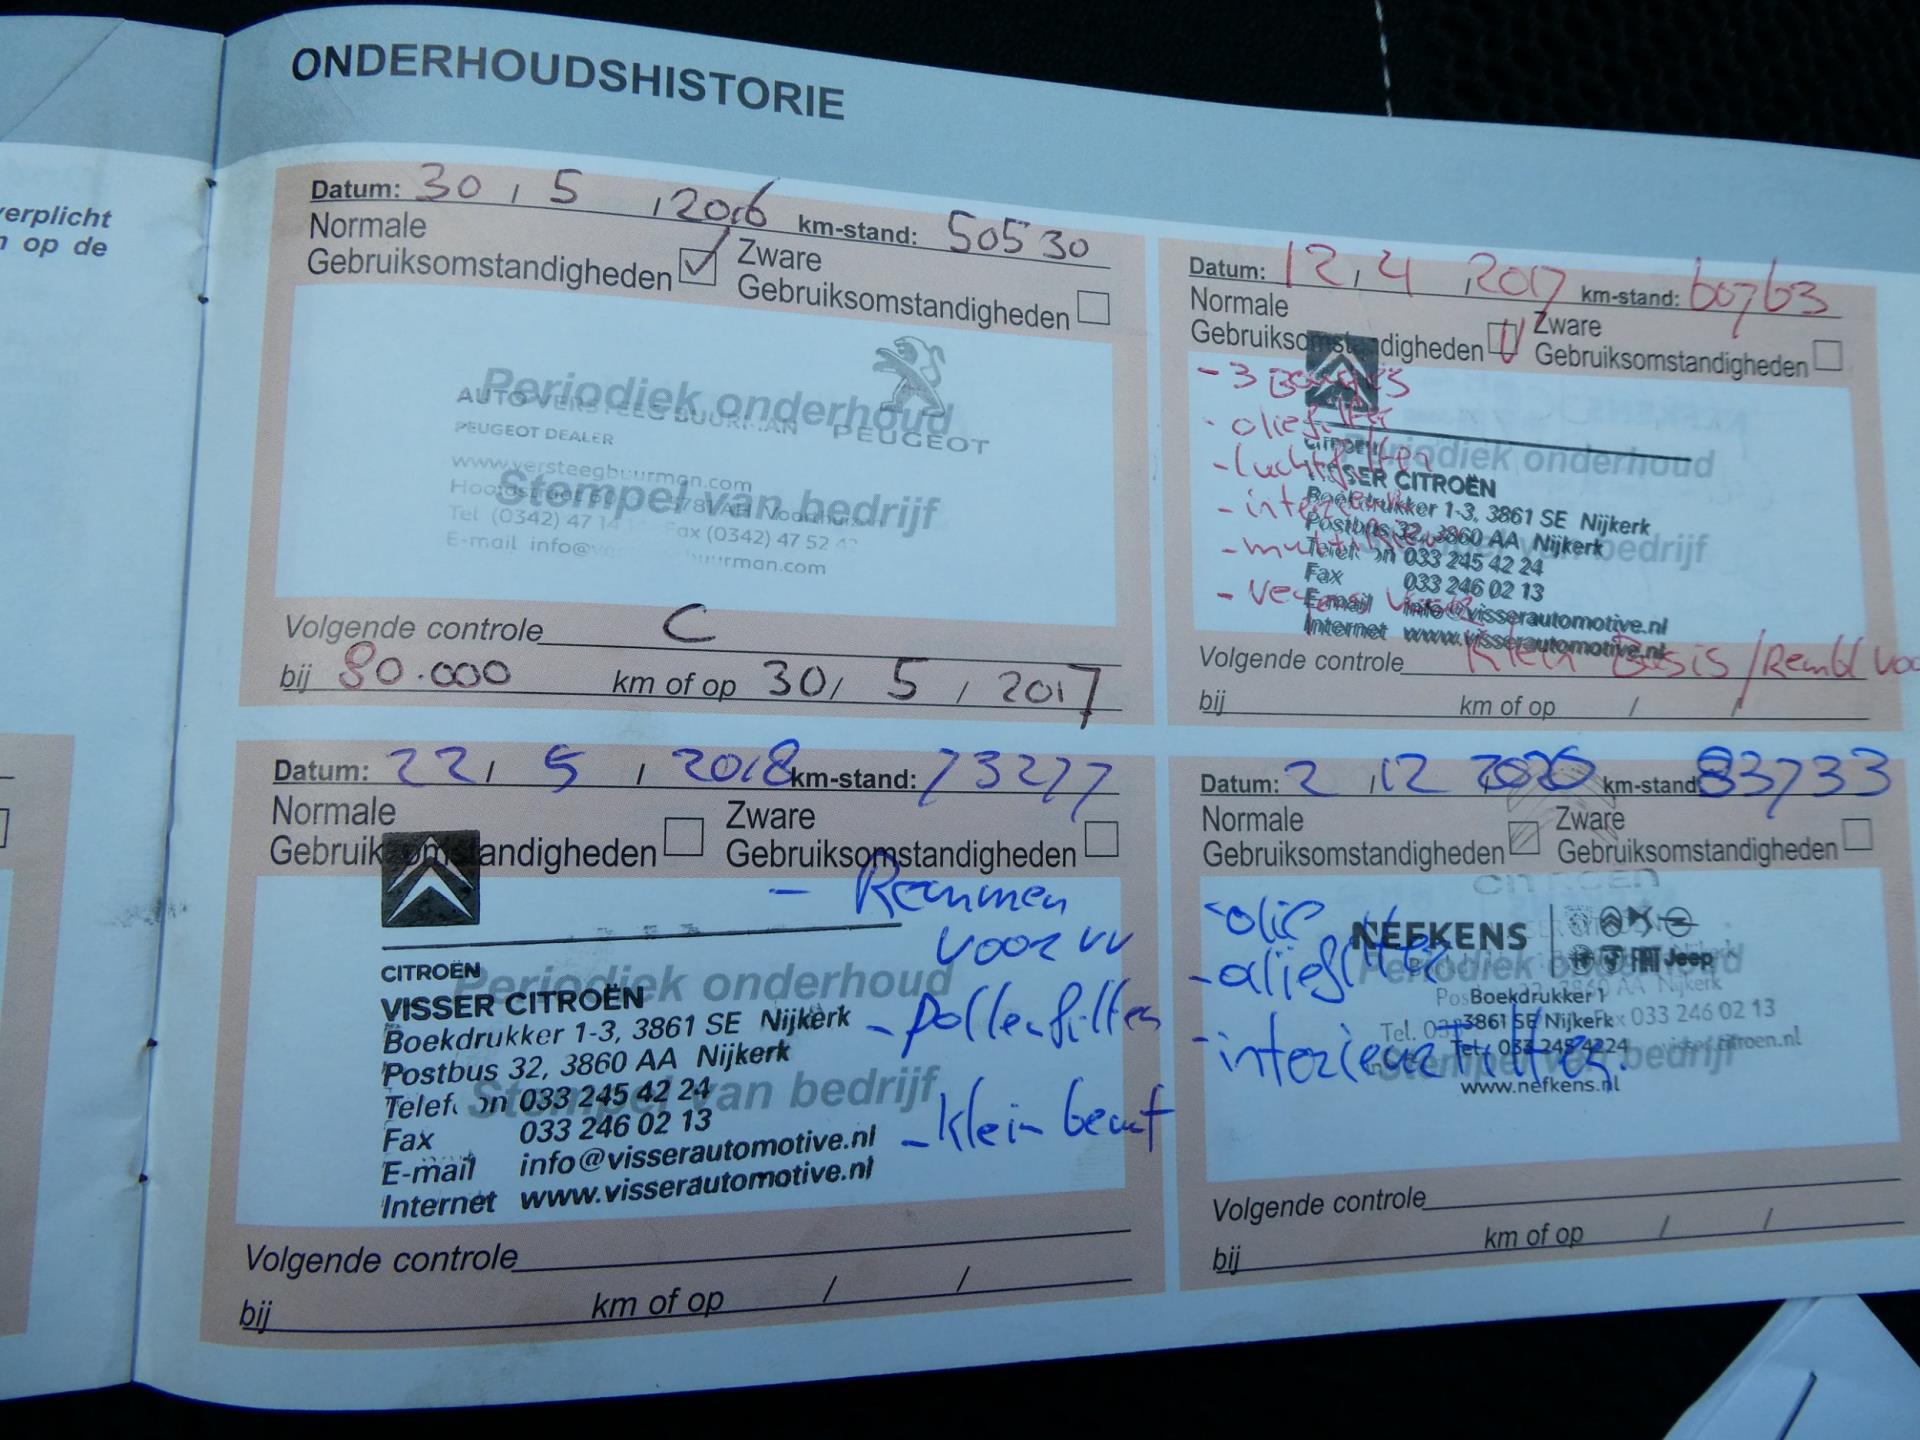 verplicht
op de
ONDERHOUDSHISTORIE
Datum: 30 / 5 / 2016 km-stand: 50530
Normale
Gebruiksomstandigheden
Zware
Gebruiksomstandigheden
PEUGEOT
AUTO VERSTEEG BUURMAN
PEUGEOT DEALER
Periodiek onderhoud
www.versteegbuurman.com
Stempel van bedrijf
Tel (0342) 47 14
Fax (0342) 47 52
E-mail info@
Volgende controle C
bij 80.000 km of op 30 / 5 / 2017
Datum: 12 / 4 / 2017 km-stand: 60763
Normale
Gebruiksomstandigheden
Zware
Gebruiksomstandigheden
- 3
- oliefilter
- luchtfilter
Periodiek onderhoud
CITROËN
VISSER CITROËN
Boekdrukker 1-3, 3861 SE Nijkerk
Postbus 32, 3860 AA Nijkerk
Telefoon 033 245 42 24
Fax 033 246 02 13
E-mail info@visserautomotive.nl
Internet www.visserautomotive.nl
van bedrijf
Volgende controle Klein Basis /
bij km of op / /
Datum: 22 / 5 / 2018 km-stand: 73277
Normale
Gebruiksomstandigheden
Zware
Gebruiksomstandigheden
- Remmen
voor vv
CITROËN
Periodiek onderhoud
VISSER CITROËN
Boekdrukker 1-3, 3861 SE Nijkerk
- pollenfilter
Postbus 32, 3860 AA Nijkerk
Stempel van bedrijf
Telefoon 033 245 42 24
Fax 033 246 02 13
- klein beurt
E-mail info@visserautomotive.nl
Internet www.visserautomotive.nl
Volgende controle
bij km of op / /
Datum: 2 / 12 2020 km-stand: 83733
Normale
Gebruiksomstandigheden
Zware
Gebruiksomstandigheden
CITROEN
- olie
- oliefilter
- interieurfilter.
NEFKENS
Jeep
Periodiek onderhoud
Boekdrukker 1
3861 SE Nijkerk
Fax 033 246 02 13
Tel.: 033 245 4224
Stempel van bedrijf
www.nefkens.nl
Volgende controle
bij km of op / /